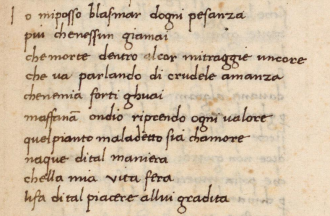 I o miposso blasmar dogni pesanza
piu chenessun giamai
chemorte dentro alcor mitraggie uncore
che va parlando di crudele amanza
chenemia forti ghuai
ondio riprendo ogni valore
quelpianto maladetto sia chamore
naque dital maniera
chella mia vita fera
dital piacere allui gradita